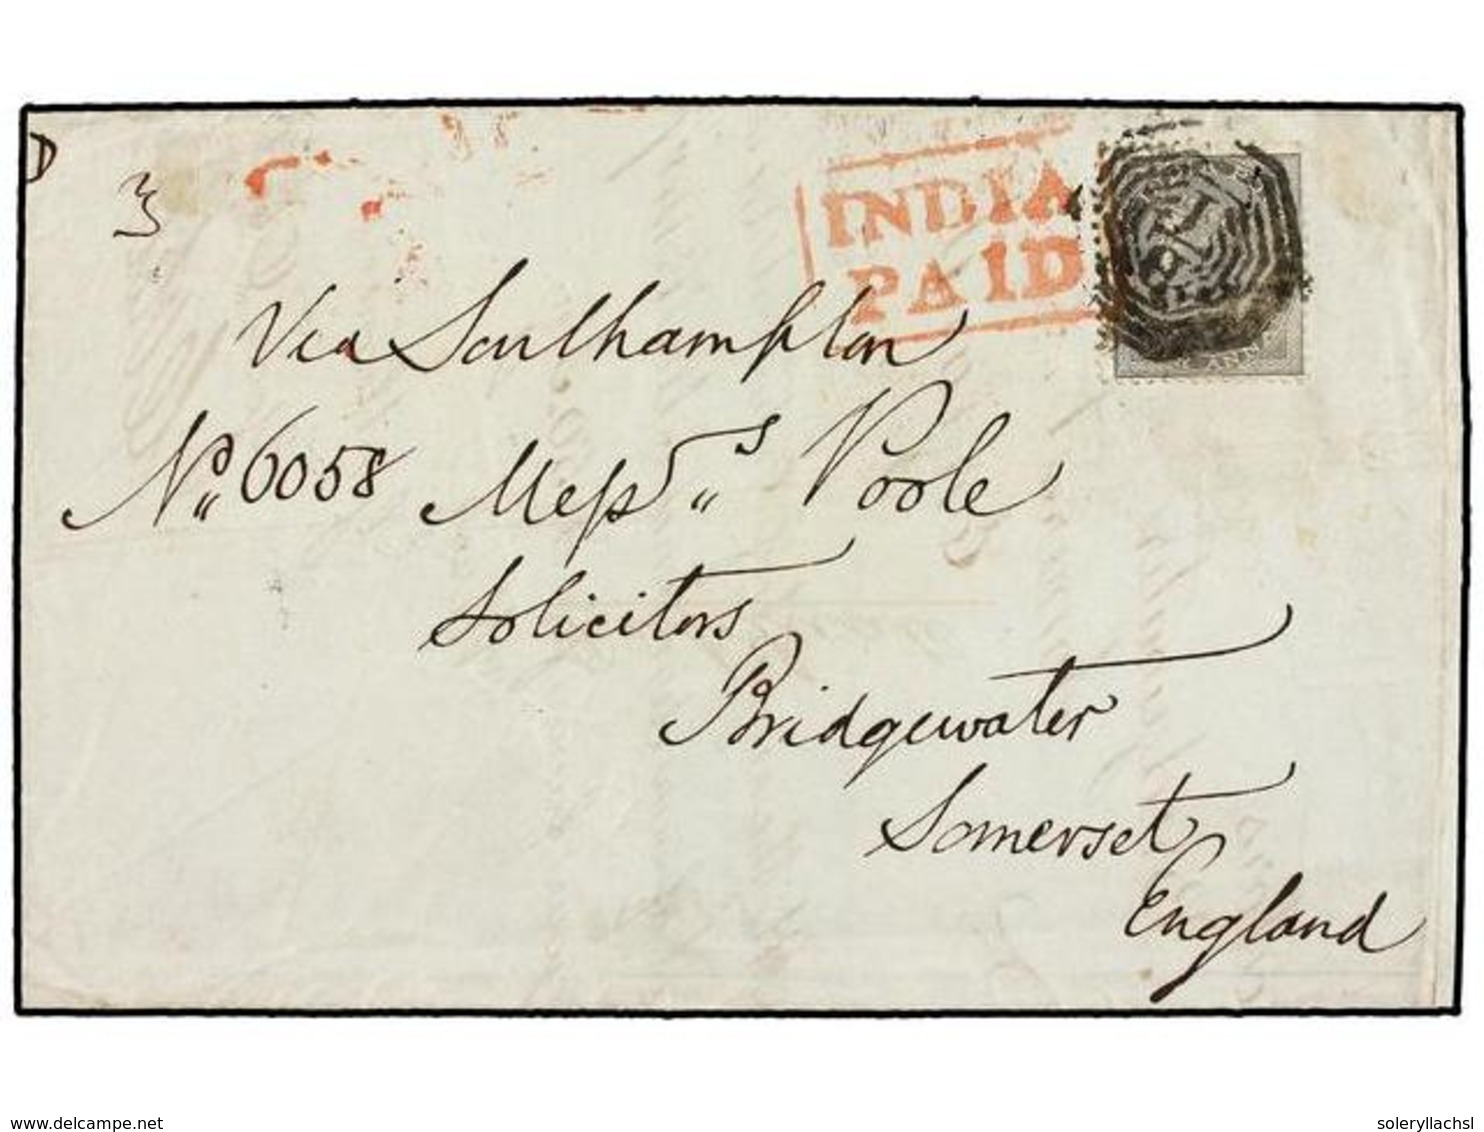 INDIA
PAID
Via Southampton
No 6058 Messrs Poole
Solicitors
Bridgewater
Somerset
England
delcampe.net
soleryllachsl